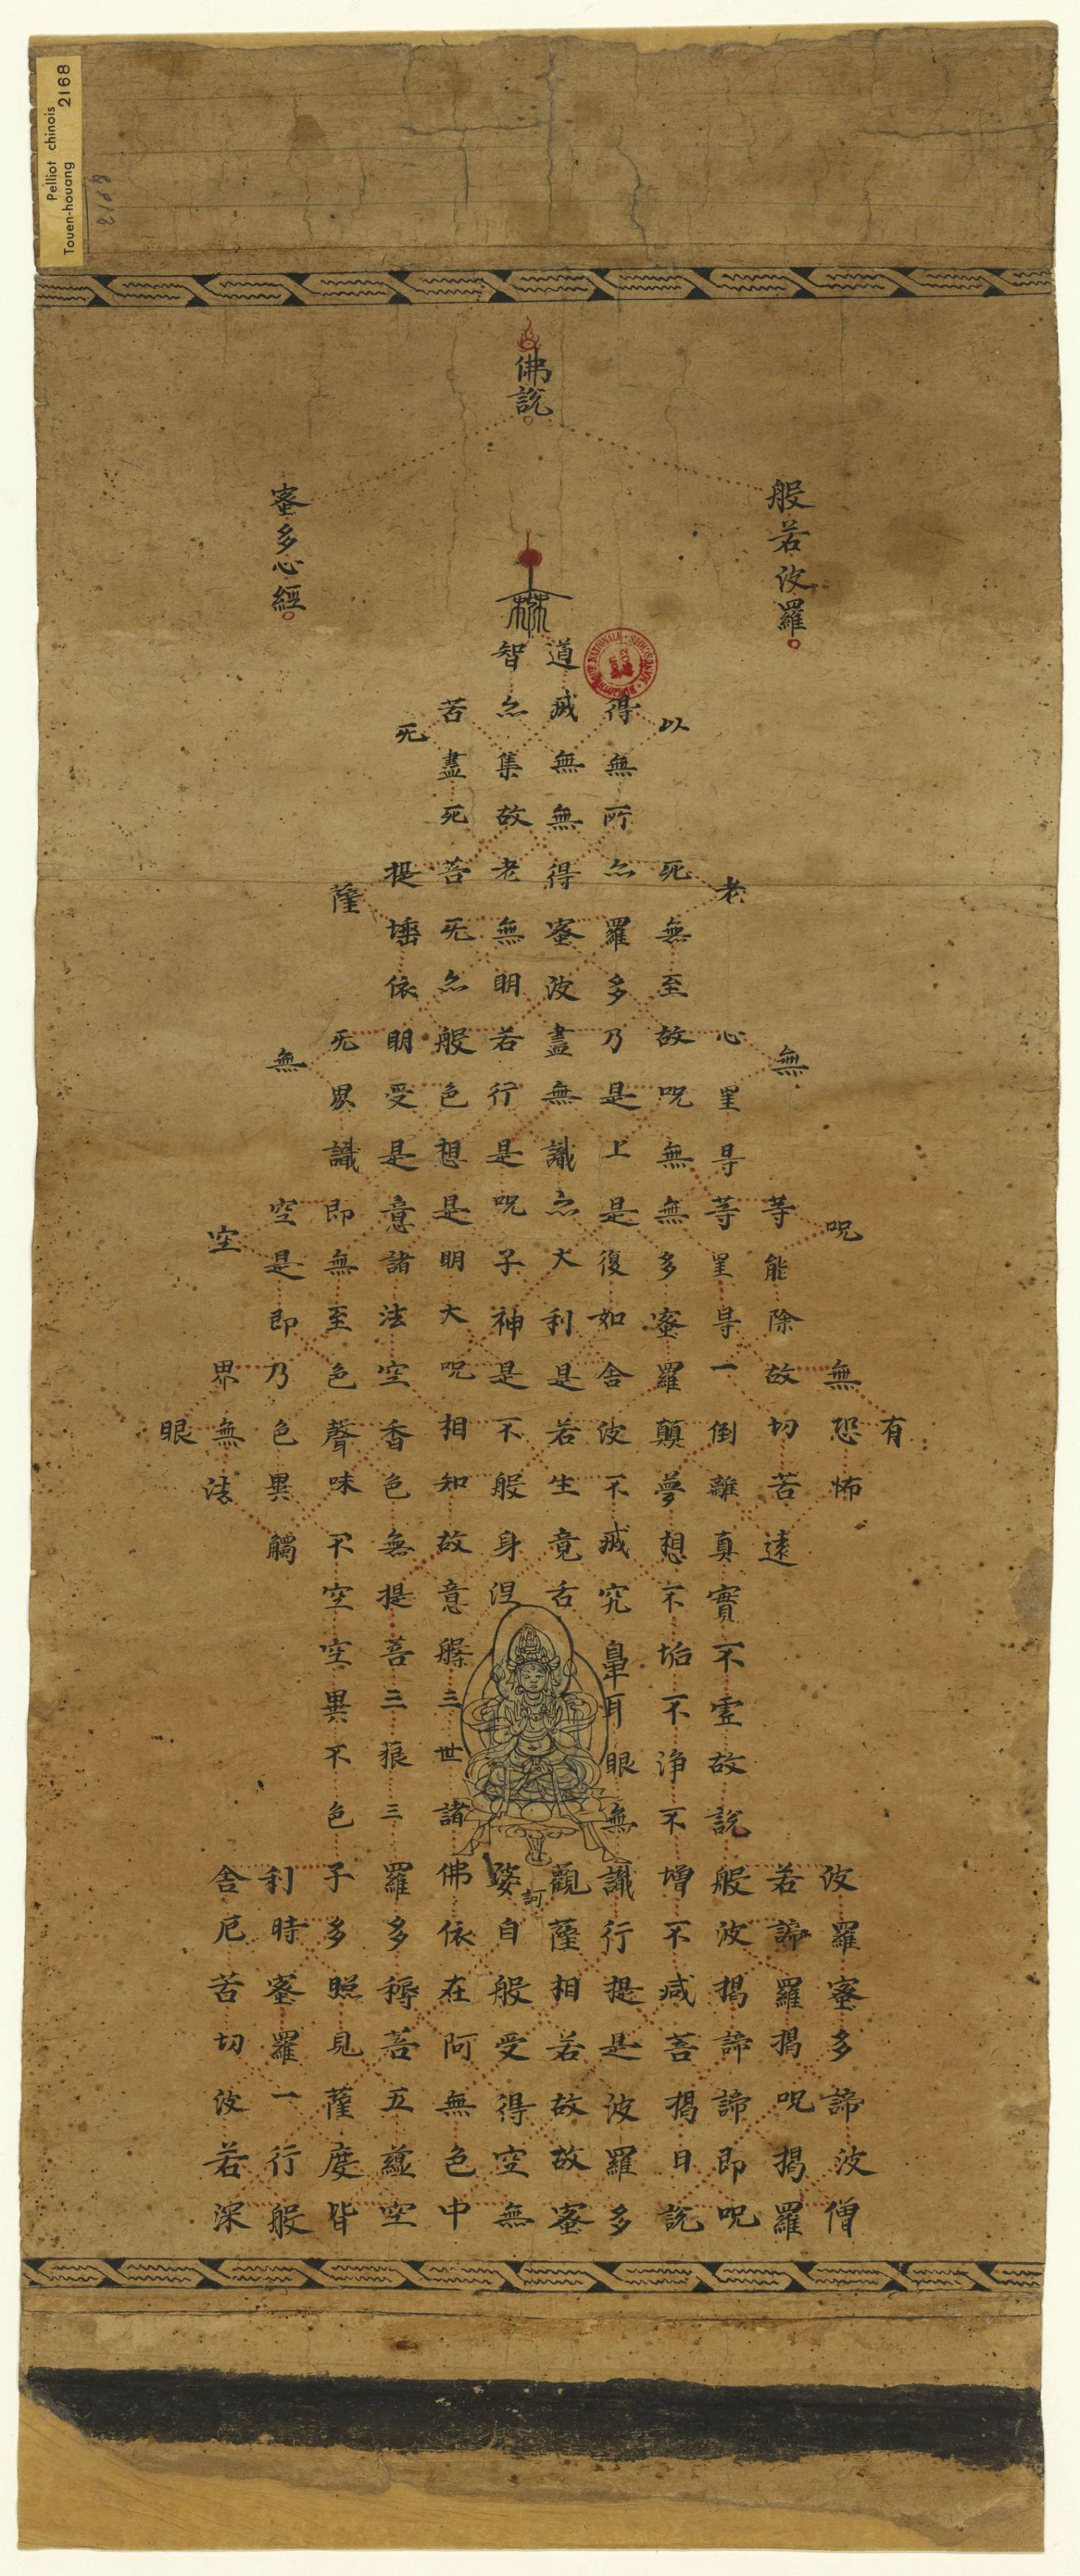 Pelliot chinois 2168
Touen-houang
佛說
般若波羅
蜜多心經
有
呪無恐怖波羅蜜多諦波僧
無等能除故切苦遠若諦羅揭呪揭羅
老心罣㝵等罣㝵一倒離真實不虛故說般波揭諦諦即呪
以死無至故呪無無多蜜羅顛夢想不垢不淨不增不咸菩揭曰說
得無所亦羅多乃是上是復如舍波不滅究鼻耳眼無識行提是波羅多
道滅無無得蜜波盡無識亦大利是若生竟舌觀薩相若故故蜜
訶
智亦集故老無明若行是呪子神是不般身涅婆自般受得空無
苦盡死菩无亦般色想是明大呪相知故意槃三世諸佛依在阿無色中
无提埵依明受是意諸法空香色無提菩三藐三羅多耨菩五蘊空
薩无界識即無至色聲味不空空異不色子多照見薩度皆
無空是即乃色異觸利時蜜羅一行般
空界無法舍厄苦切波若深
眼